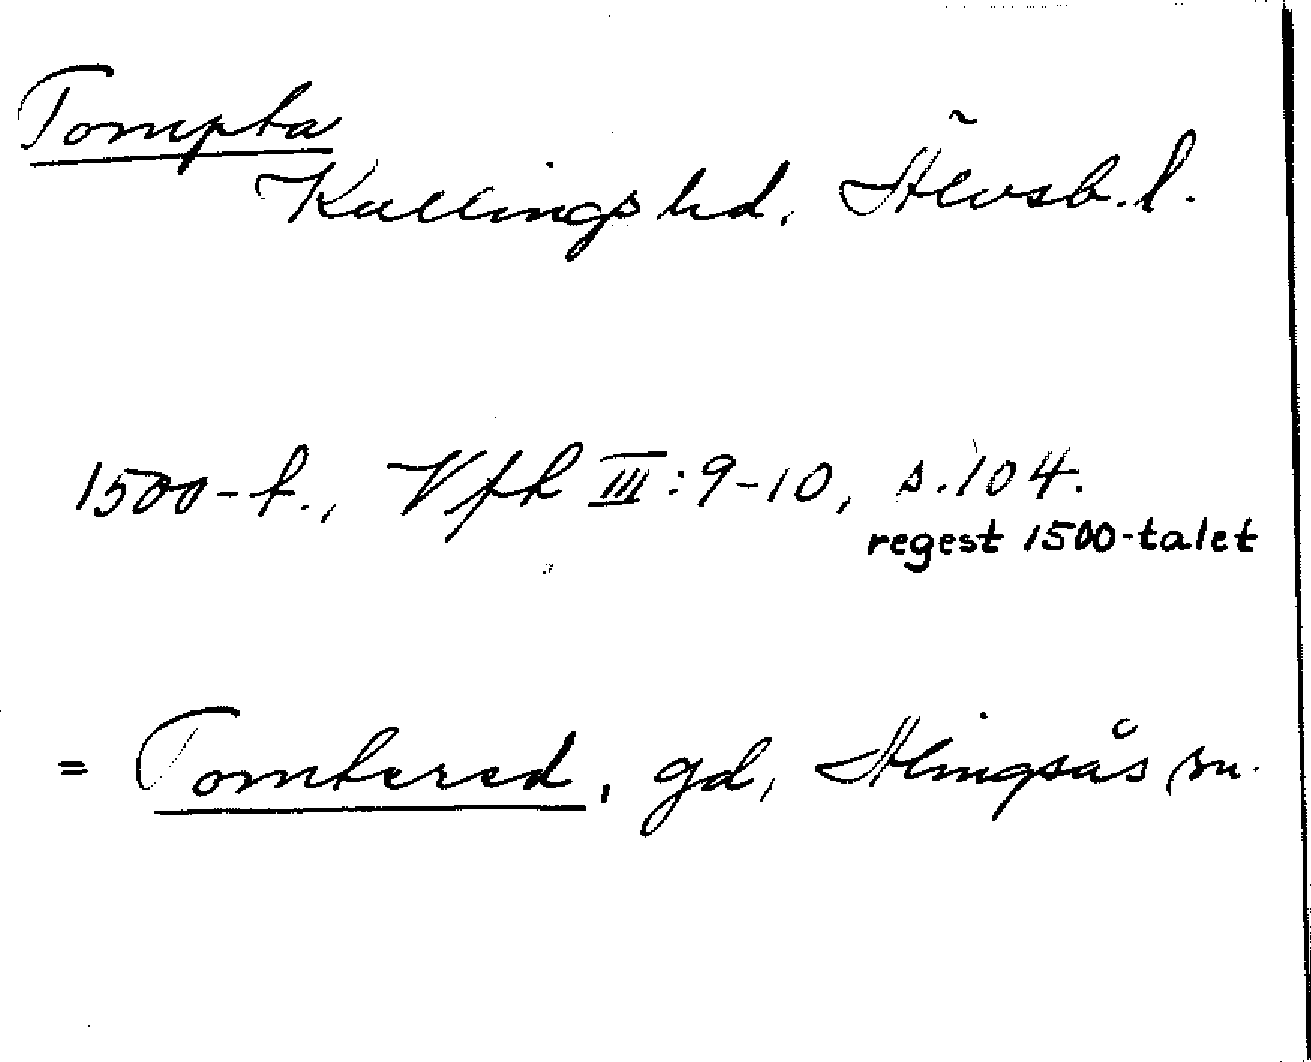 Tompta
Kullings hd, Älvsb. l.
1500-t., Vfh III:9-10, s.104.
regest 1500-talet
= Tomtered, gd, Alingsås sn.